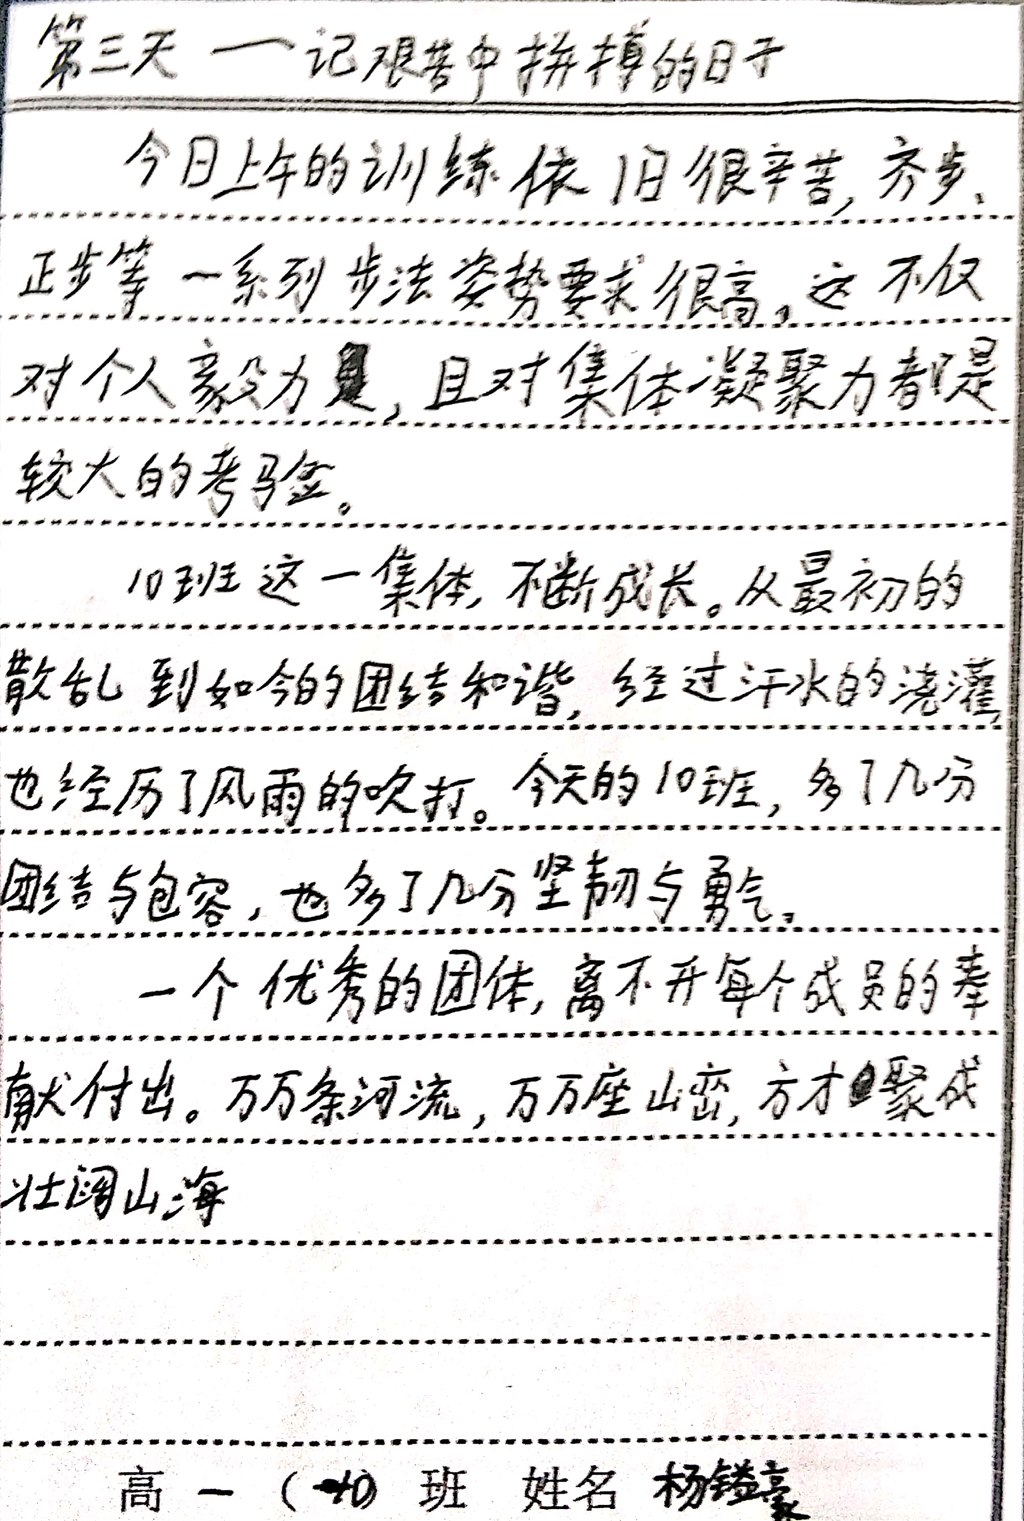 第三天 一记艰苦中拼搏的日子
今日上午的训练依旧很辛苦,齐步、
正步等一系列步法姿势要求很高。这不仅
对个人毅力是,且对集体凝聚力都是
较大的考验。
10班这一集体,不断成长。从最初的
散乱到如今的团结和谐,经过汗水的浇灌,
也经历了风雨的吹打。今天的10班,多了几分
团结与包容,也多了几分坚韧与勇气。
一个优秀的团体,离不开每个成员的奉
献付出。万万条河流,万万座山峦,方才聚成
壮阔山海
高一(10)班 姓名 杨镒豪